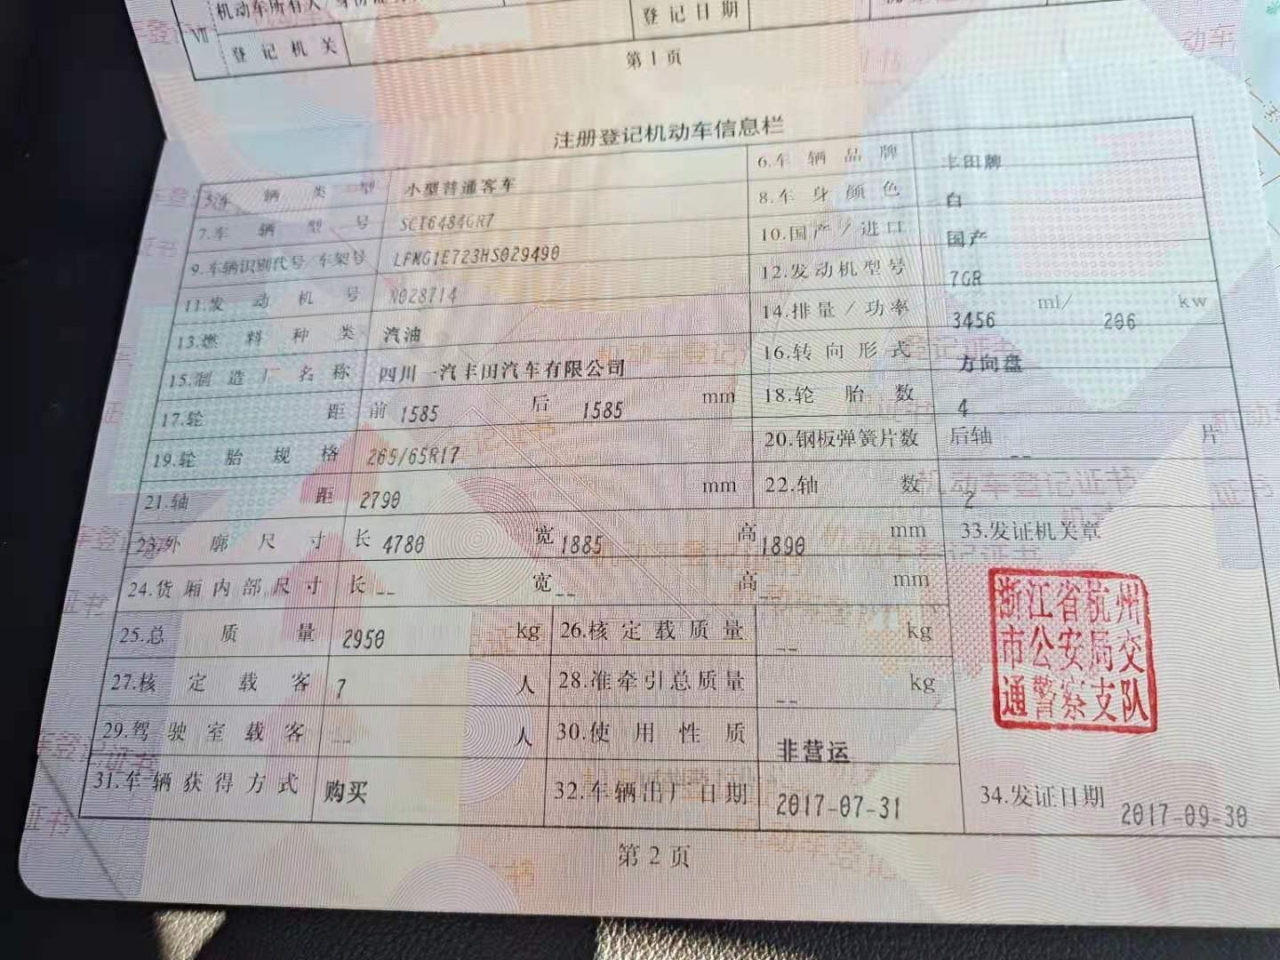 Ⅶ 机动车所有人/身份证
登记机关 登记日期
第1页
注册登记机动车信息栏
5.车辆类型 小型普通客车 6.车辆品牌 丰田牌
7.车辆型号 SCT6484GR7 8.车身颜色 白
9.车辆识别代号/车架号 LFMG1E723HS029490 10.国产/进口 国产
11.发动机号 N028714 12.发动机型号 7GR
13.燃料种类 汽油 14.排量/功率 3456 ml/ 206 kw
15.制造厂名称 四川一汽丰田汽车有限公司 16.转向形式 方向盘
17.轮距 前 1585 后 1585 mm 18.轮胎数 4
19.轮胎规格 265/65R17 20.钢板弹簧片数 后轴 -- 片
21.轴距 2790 mm 22.轴数 2
23.外廓尺寸 长 4780 宽 1885 高 1890 mm 33.发证机关章
24.货厢内部尺寸 长 -- 宽 -- 高 -- mm
浙江省杭州
市公安局交
通警察支队
25.总质量 2950 kg 26.核定载质量 -- kg
27.核定载客 7 人 28.准牵引总质量 -- kg
29.驾驶室载客 -- 人 30.使用性质 非营运
31.车辆获得方式 购买 32.车辆出厂日期 2017-07-31 34.发证日期 2017-09-30
第2页